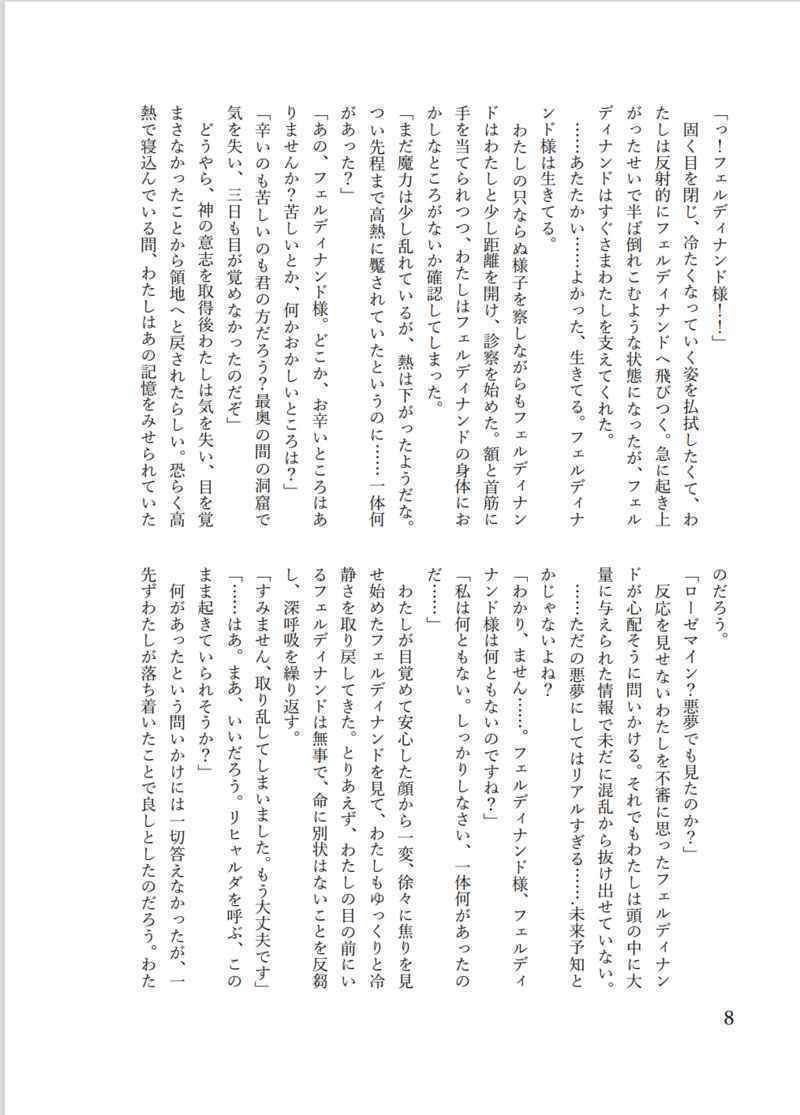 「っ！フェルディナンド様！！」
　固く目を閉じ、冷たくなっていく姿を払拭したくて、わ
たしは反射的にフェルディナンドへ飛びつく。急に起き上
がったせいで半ば倒れこむような状態になったが、フェル
ディナンドはすぐさまわたしを支えてくれた。
　……あたたかい……よかった、生きてる。フェルディナ
ンド様は生きてる。
　わたしの只ならぬ様子を察しながらもフェルディナン
ドはわたしと少し距離を開け、診察を始めた。額と首筋に
手を当てられつつ、わたしはフェルディナンドの身体にお
かしなところがないか確認してしまった。
「まだ魔力は少し乱れているが、熱は下がったようだな。
つい先程まで高熱に魘されていたというのに……一体何
があった？」
「あの、フェルディナンド様。どこか、お辛いところはあ
りませんか？苦しいとか、何かおかしいところは？」
「辛いのも苦しいのも君の方だろう？最奥の間の洞窟で
気を失い、三日も目が覚めなかったのだぞ」
　どうやら、神の意志を取得後わたしは気を失い、目を覚
まさなかったことから領地へと戻されたらしい。恐らく高
熱で寝込んでいる間、わたしはあの記憶をみせられていた
のだろう。
「ローゼマイン？悪夢でも見たのか？」
　反応を見せないわたしを不審に思ったフェルディナン
ドが心配そうに問いかける。それでもわたしは頭の中に大
量に与えられた情報で未だに混乱から抜け出せていない。
　……ただの悪夢にしてはリアルすぎる…….未来予知と
かじゃないよね？
「わかり、ません……。フェルディナンド様、フェルディ
ナンド様は何ともないのですね？」
「私は何ともない。しっかりしなさい、一体何があったの
だ……」
　わたしが目覚めて安心した顔から一変、徐々に焦りを見
せ始めたフェルディナンドを見て、わたしもゆっくりと冷
静さを取り戻してきた。とりあえず、わたしの目の前にい
るフェルディナンドは無事で、命に別状はないことを反芻
し、深呼吸を繰り返す。
「すみません、取り乱してしまいました。もう大丈夫です」
「……はあ。まあ、いいだろう。リヒャルダを呼ぶ、この
まま起きていられそうか？」
　何があったという問いかけには一切答えなかったが、一
先ずわたしが落ち着いたことで良しとしたのだろう。わた
8